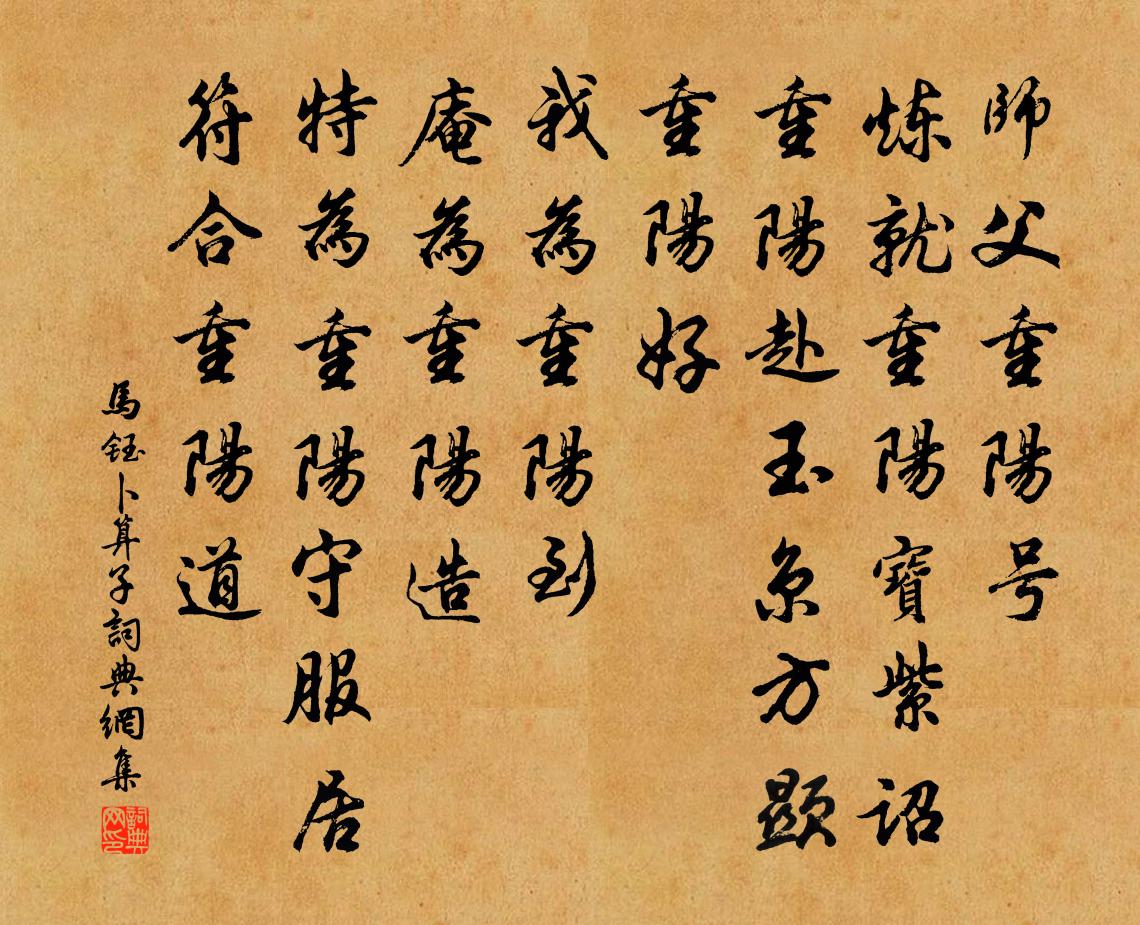 師父重陽号
炼就重陽寳紫诏
重陽赴玉京方顕
重陽好
我為重陽到
庵為重陽造
特為重陽守服居
符合重陽道
馬鈺卜算子詞典網集
詞典网印